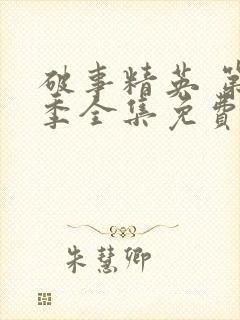 破事精英 第
季全集免費
朱慧卿